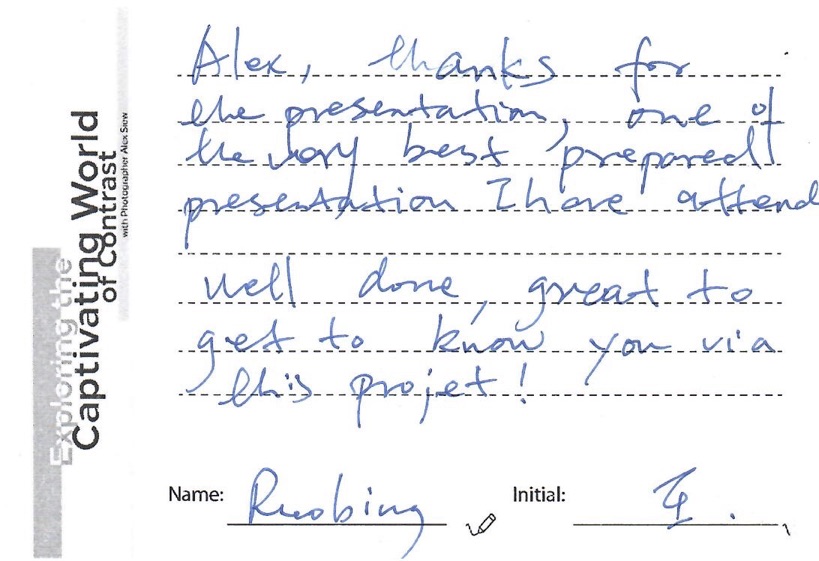 Exploring the
Captivating World
of Contrast
with Photographer Alex Siew
Alex, thanks for
the presentation, one of
the very best prepared
presentation I have attend
well done, great to
get to know you via
this projet!
Name: Ruobing
Initial: